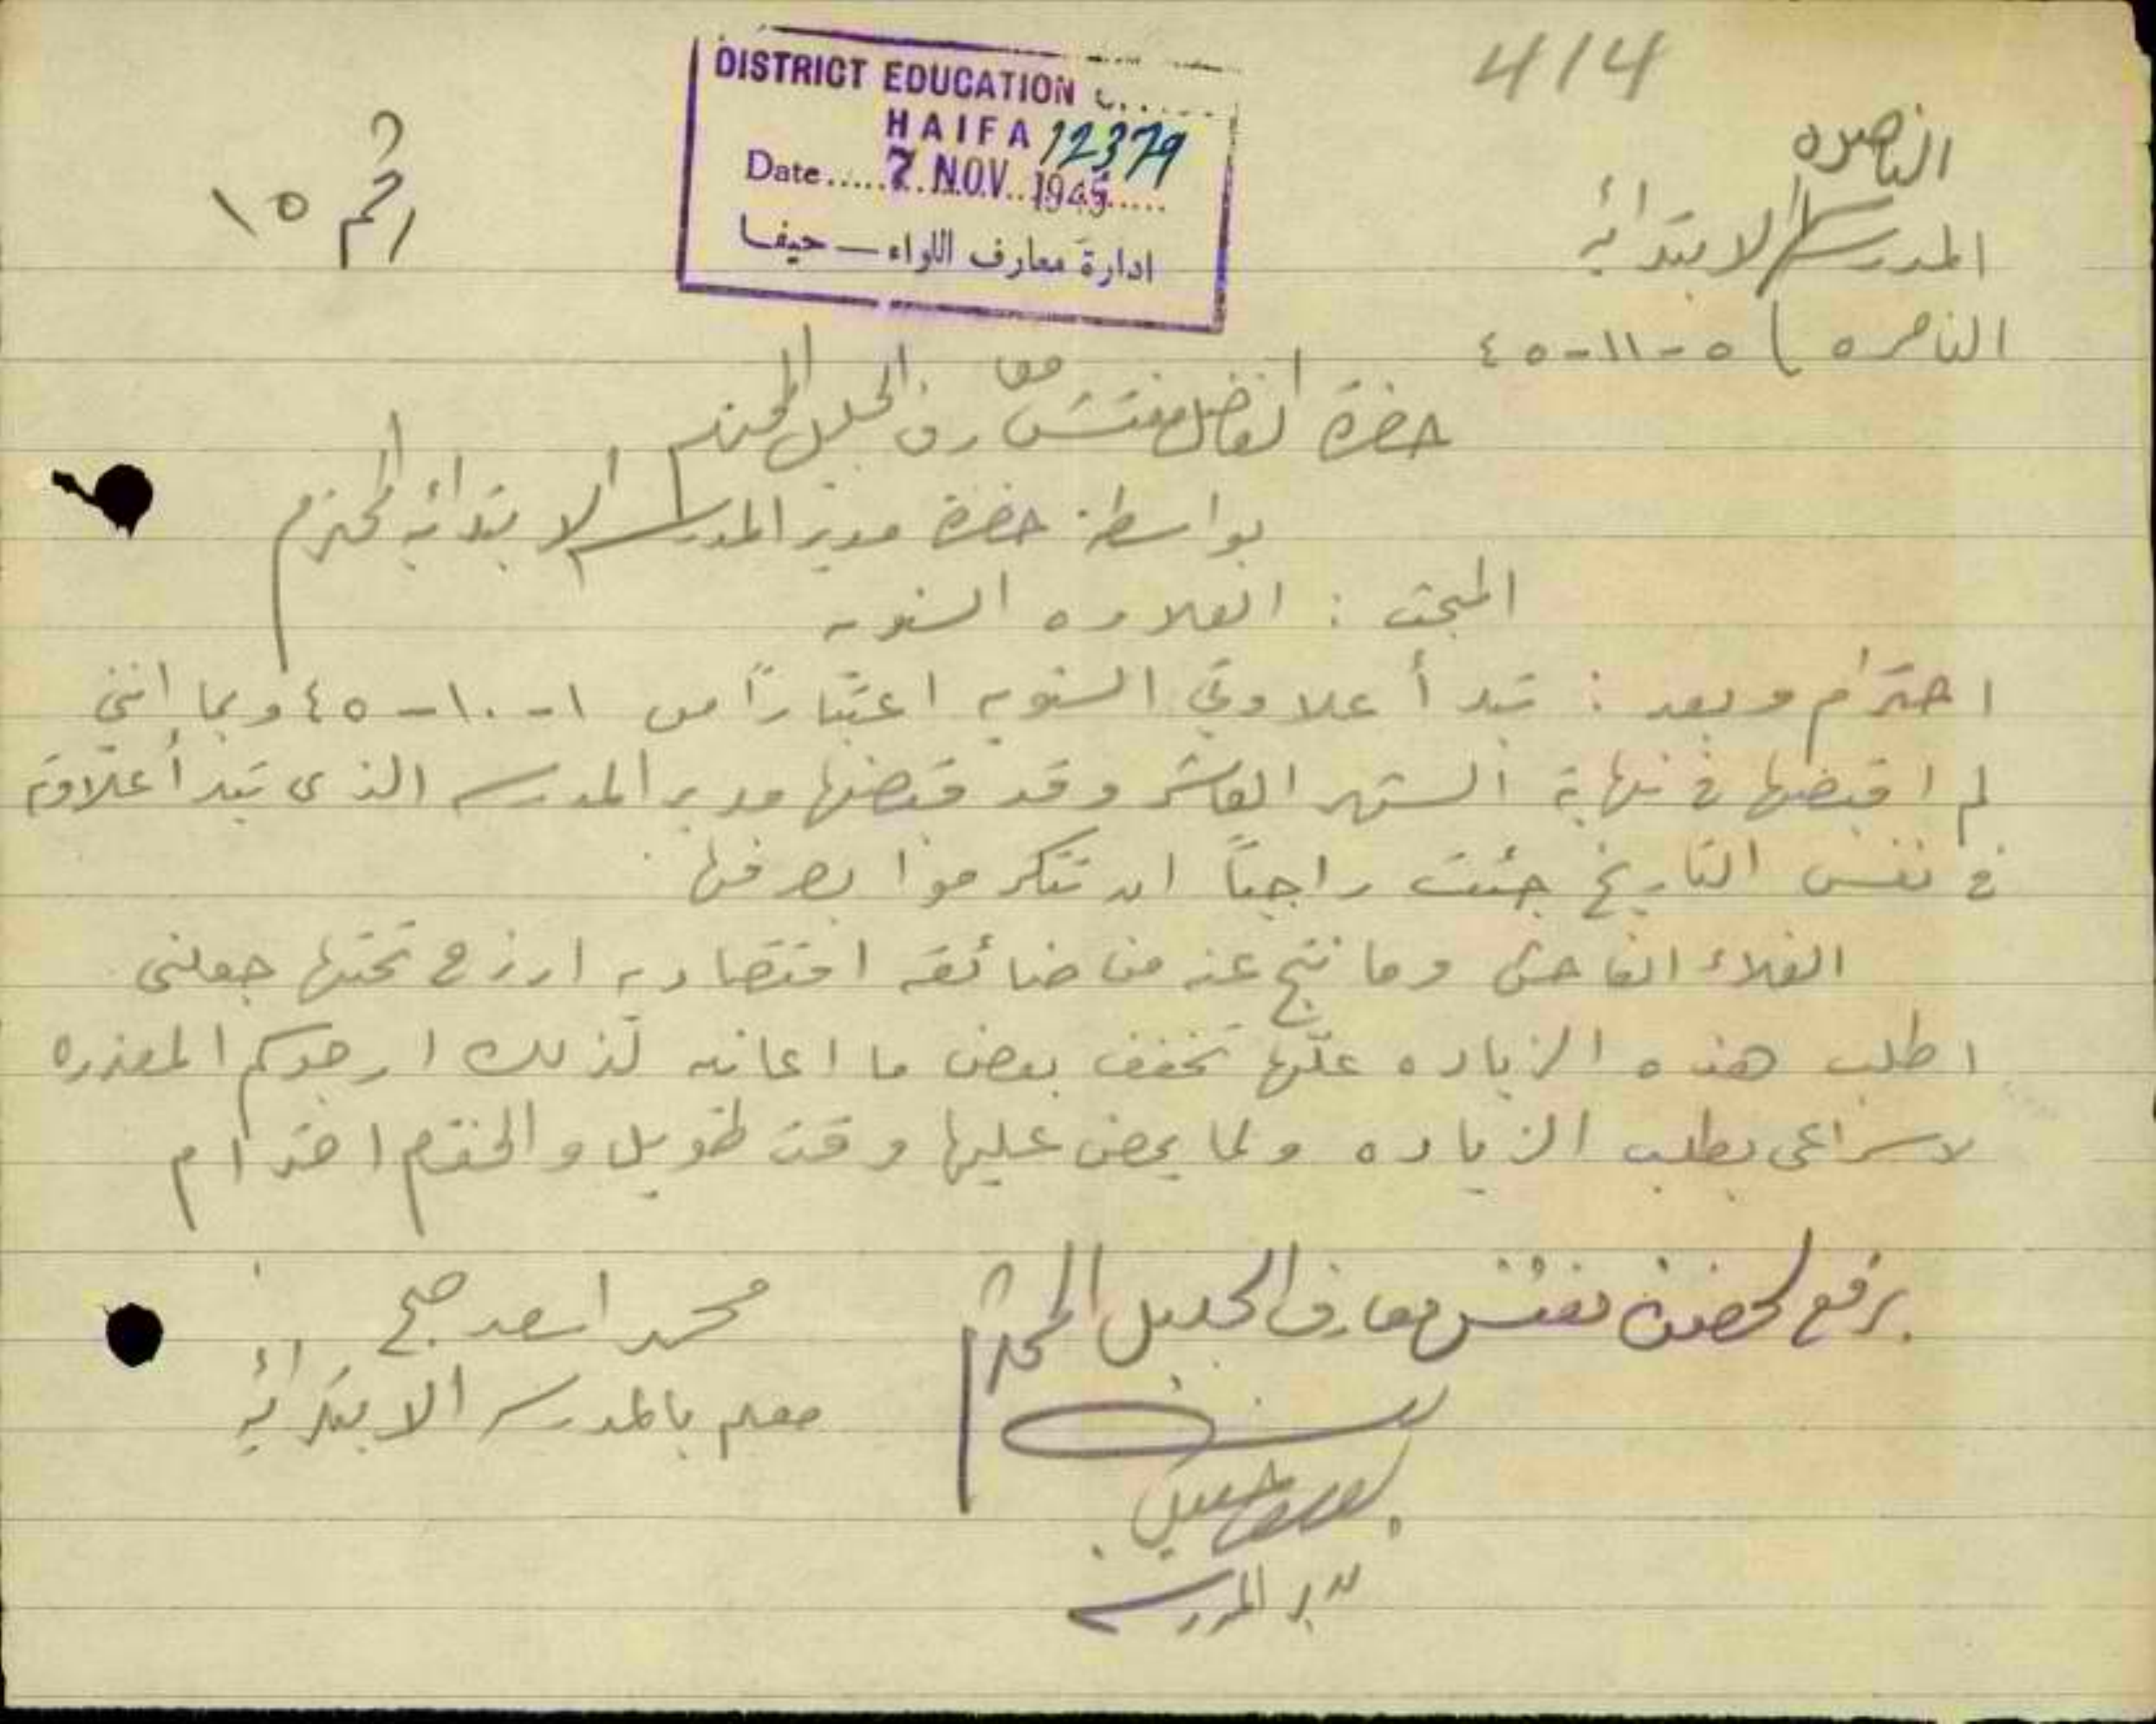 414
الناصره
المدرسه الابتدائيه
الناصره ) ٥-١١-٤٥
رقم ١٥
DISTRICT EDUCATION
HAIFA 12379
Date..... 7. NOV. 1945.....
ادارة معارف اللواء — حيفا
حضرة الفاضل مفتش معارف الجليل المحترم
بواسطة حضرة مدير المدرسه الابتدائيه المحترم
المبحث : العلاوه السنويه
احترام وبعد : تبدأ علاوتي السنويه اعتباراً من ١-١٠-٤٥ وبما انني
لم اقبضها في نهاية الشهر العاشر وقد قبضها مدير المدرسه الذى تبدأ علاوته
في نفس التاريخ جئت راجياً ان تتكرموا بصرفها
الغلاء الفاحش وما نتج عنه من ضائقه اقتصاديه ارزح تحتها جعلنى
اطلب هذه الزياده علّها تخفف بعض ما اعانيه لذلك ارجوكم المعذره
لاسراعى بطلب الزياده ولما يمض عليها وقت طويل والختم احترام
محمد اسعد صبح
معلم بالمدرسه الابتدائيه
يرفع لحضرة مفتش معارف الجليل المحترم
مدير المدرسه